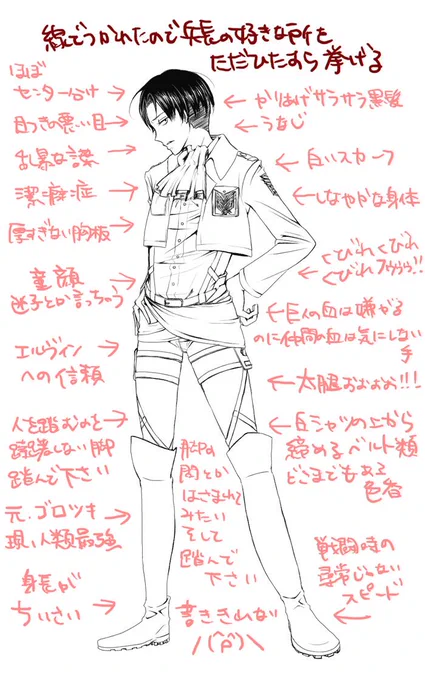 線でつかれたので兵長の好きな所を
ただひたすら挙げる
ほぼ
センター分け
目つきの悪い目
乱暴な言葉
潔癖症
厚すぎない胸板
童顔
迷子とか言っちゃう
エルヴィン
への信頼
人を踏むのを
躊躇しない脚
踏んで下さい
元.ゴロツキ
現.人類最強
身長が
ちいさい
かりあげサラサラ黒髪
うなじ
白いスカーフ
しなやかな身体
くびれくびれ
くびれフゥゥゥ!!
巨人の血は嫌がる
のに仲間の血は気にしない
手
太腿おおおお!!!
白シャツの上から
締めるベルト類
どこまでもある
色香
戦闘時の
尋常じゃない
スピード
脚の
間とか
はさまれて
みたい
そして
踏んで
下さい
書ききれない
/(^ρ^)\